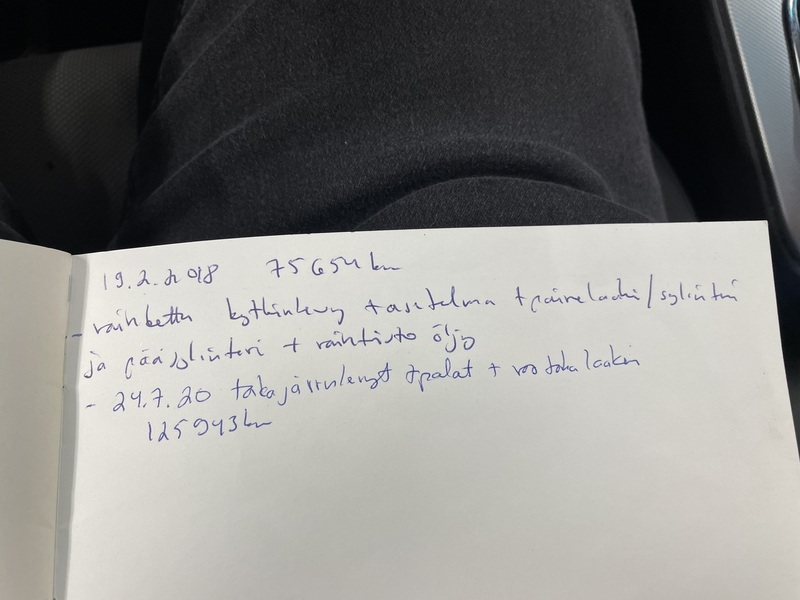 19.2.2018 75654 km
- vaihdettu kytkinlevy + asetelma + painelaakeri/sylinteri
ja pääsylinteri + vaihteisto öljy
- 24.7.20 takajarrulevyt + palat + taka laakeri
125943 km